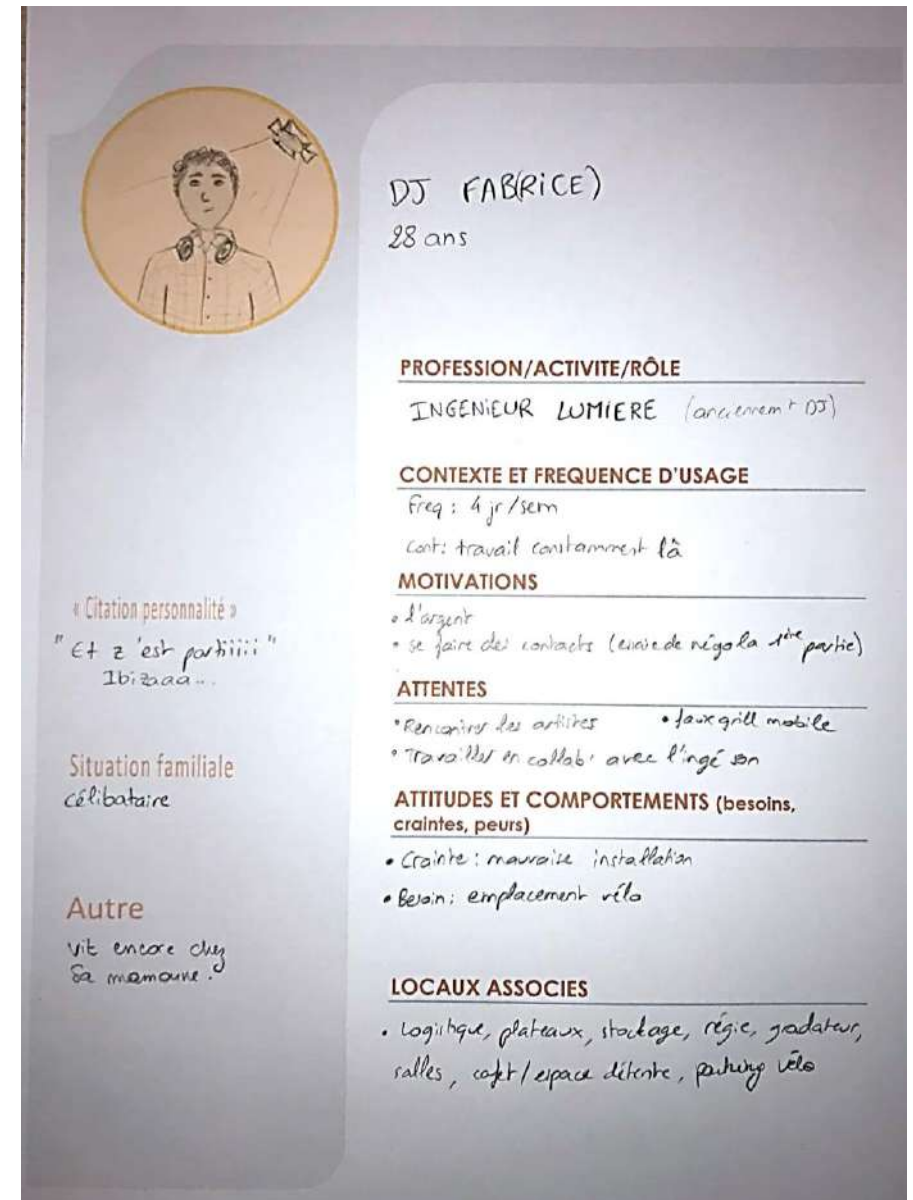 DJ FAB(RICE)
28 ans
PROFESSION/ACTIVITE/RÔLE
INGENIEUR LUMIERE (anciennemt DJ)
CONTEXTE ET FREQUENCE D'USAGE
Freq : 4 jr/sem
Cont : travail constamment là
MOTIVATIONS
• l'argent
• se faire des contacts (envie de négo la 1ère partie)
ATTENTES
• Rencontrer les artistes • faux grill mobile
• Travailler en collab' avec l'ingé son
ATTITUDES ET COMPORTEMENTS (besoins,
craintes, peurs)
• Crainte : mauvaise installation
• Besoin : emplacement vélo
LOCAUX ASSOCIES
• Logistique, plateaux, stockage, régie, gradateur,
salles, cafet/espace détente, parking vélo
« Citation personnalité »
"Et z'est partiiiii"
Ibizaaa...
Situation familiale
célibataire
Autre
vit encore chez
sa mamoune.